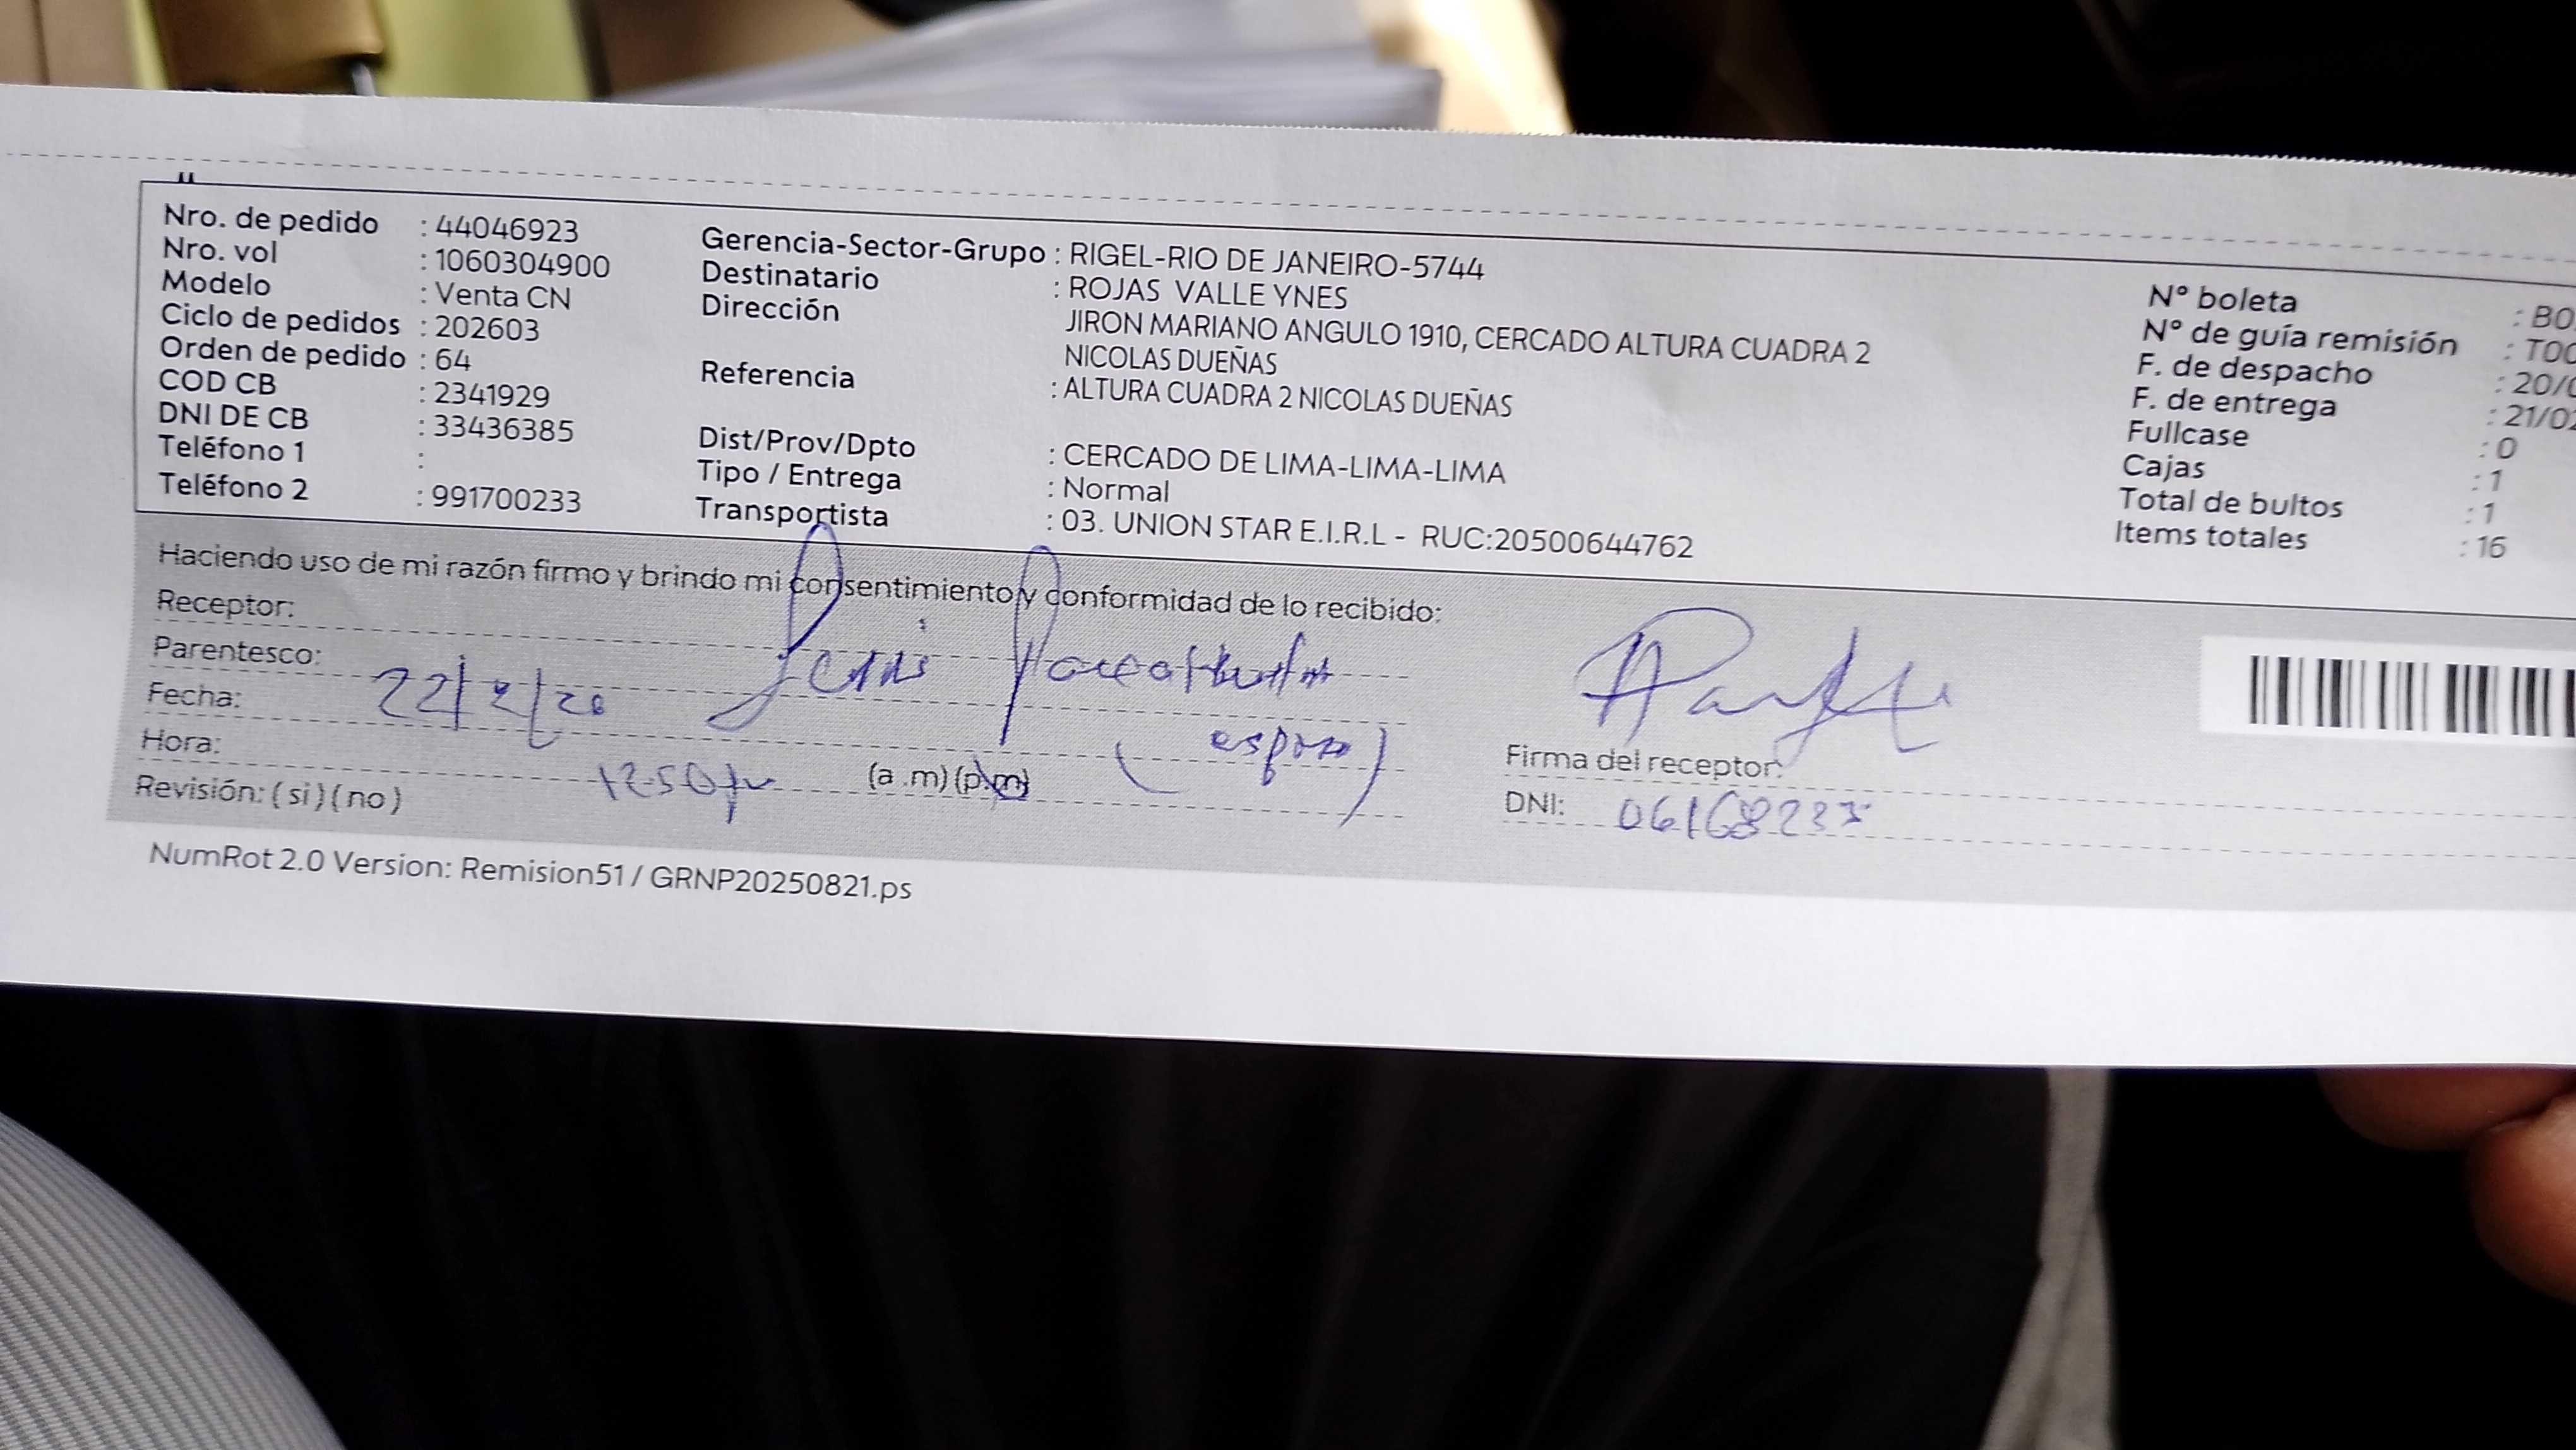 Nro. de pedido : 44046923
Nro. vol : 1060304900
Modelo : Venta CN
Ciclo de pedidos : 202603
Orden de pedido : 64
COD CB : 2341929
DNI DE CB : 33436385
Teléfono 1 :
Teléfono 2 : 991700233
Gerencia-Sector-Grupo : RIGEL-RIO DE JANEIRO-5744
Destinatario : ROJAS VALLE YNES
Dirección JIRON MARIANO ANGULO 1910, CERCADO ALTURA CUADRA 2
NICOLAS DUEÑAS
Referencia : ALTURA CUADRA 2 NICOLAS DUEÑAS
Dist/Prov/Dpto : CERCADO DE LIMA-LIMA-LIMA
Tipo / Entrega : Normal
Transportista : 03. UNION STAR E.I.R.L - RUC:20500644762
N° boleta : B0
N° de guía remisión : T00
F. de despacho : 20/0
F. de entrega : 21/02
Fullcase : 0
Cajas : 1
Total de bultos : 1
Items totales : 16
Haciendo uso de mi razón firmo y brindo mi consentimiento y conformidad de lo recibido:
Receptor:
Parentesco:
Fecha: 22/2/26
(esposo)
Hora: 12.50 pm (a .m) (p.m)
Revisión: ( si ) ( no )
Firma del receptor:
DNI:
NumRot 2.0 Version: Remision51 / GRNP20250821.ps